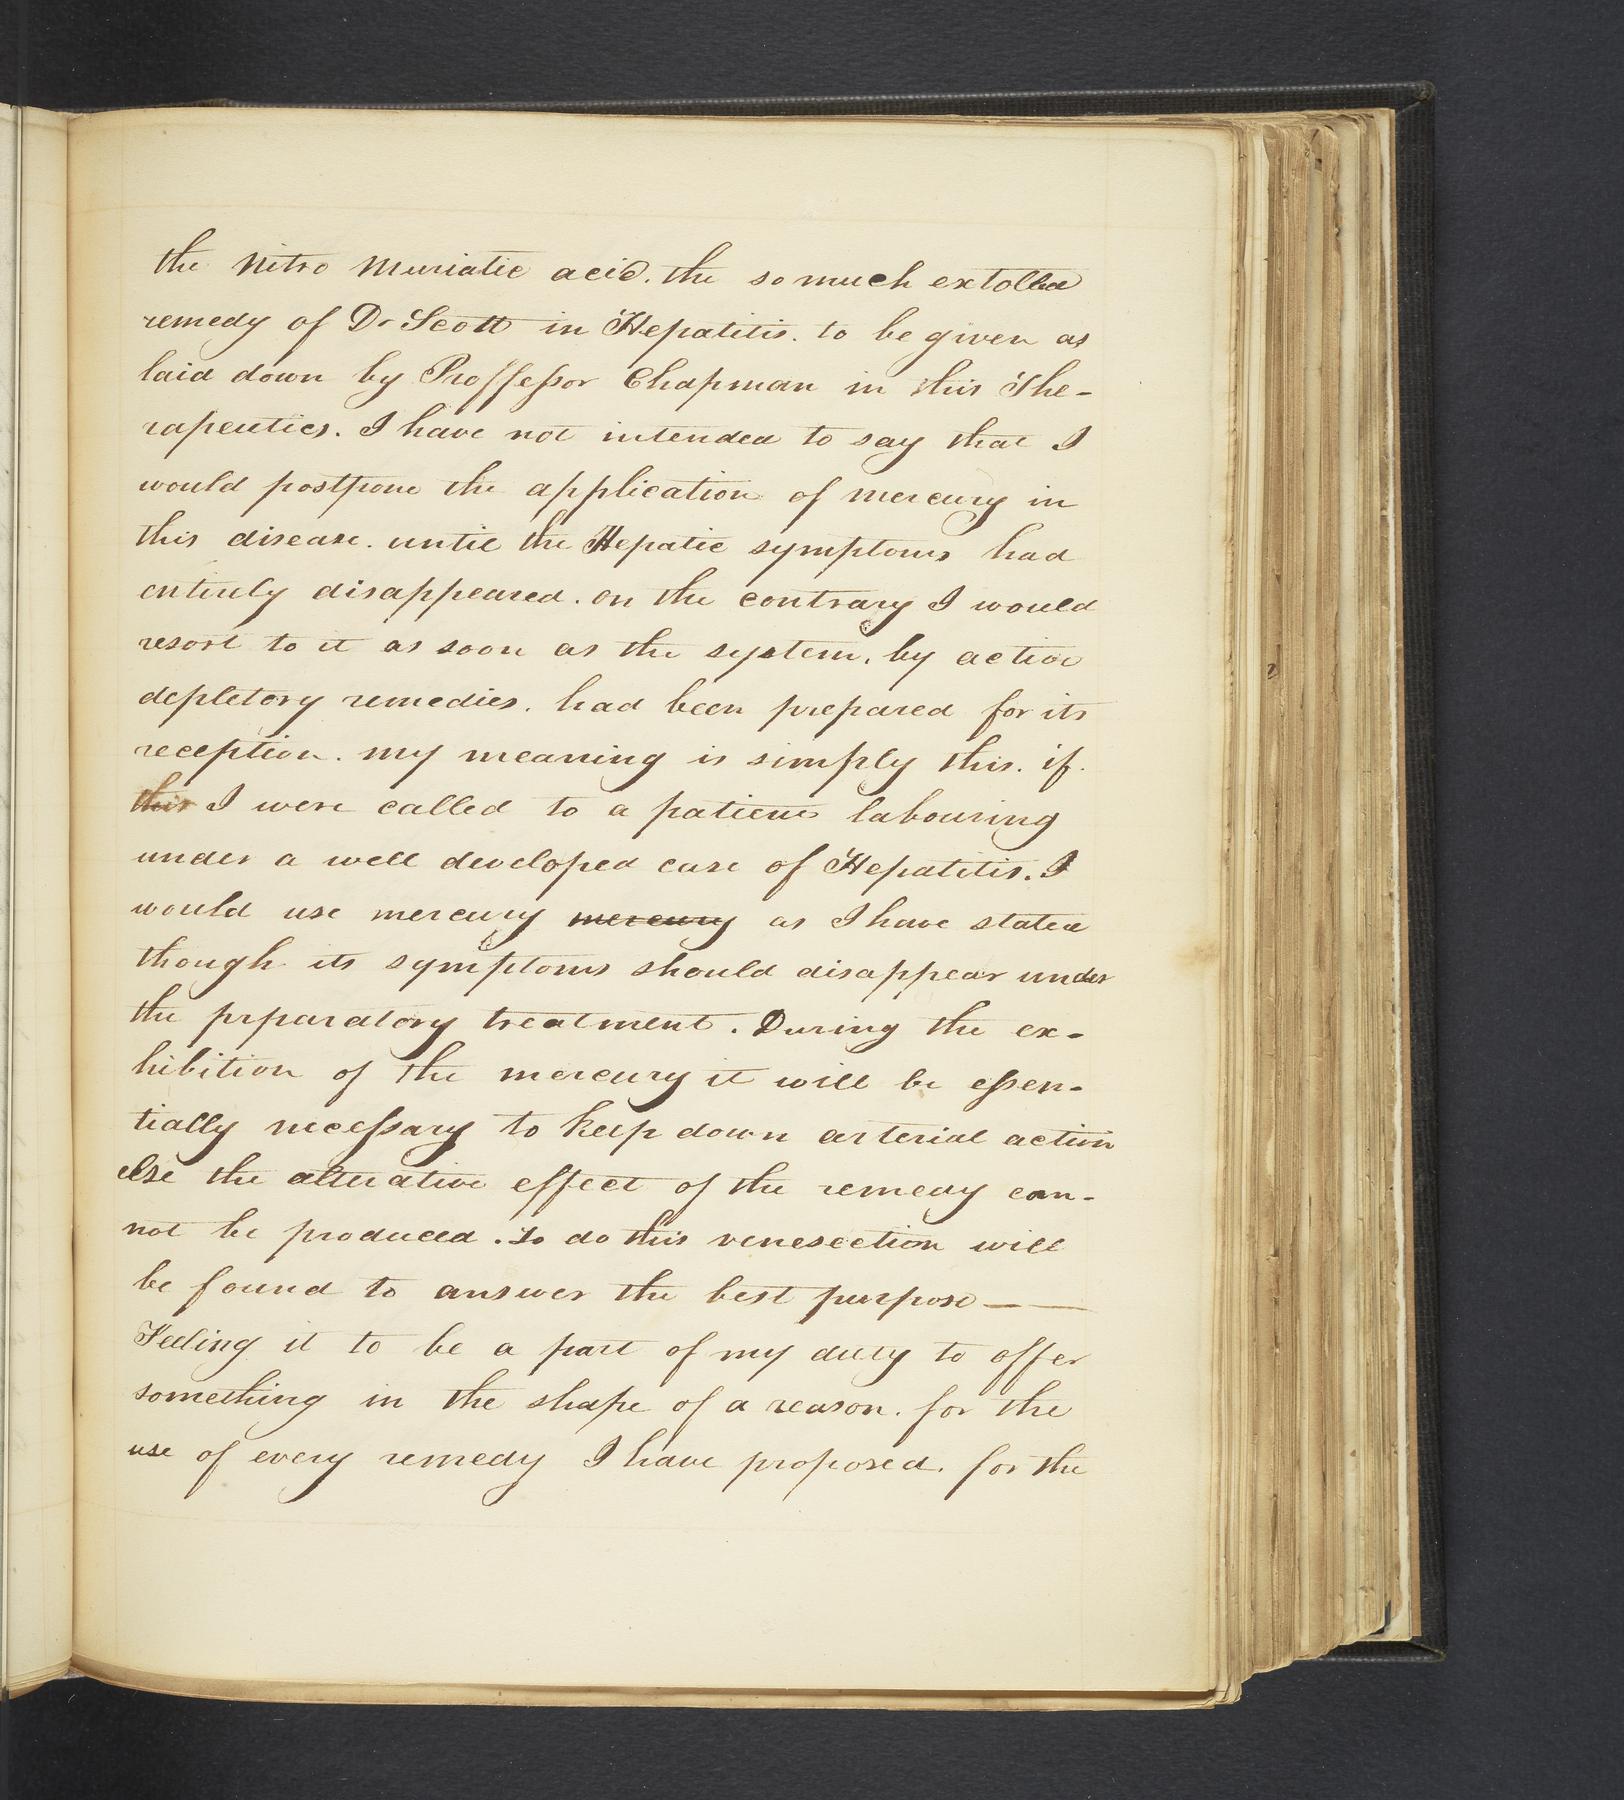 the Nitro Muriatic acid. the so much extolled
remedy of Dr Scott in Hepatitis. to be given as
laid down by Proffessor Chapman in this The-
rapeutics. I have not intended to say that I
would postpone the application of mercury in
this disease. until the Hepatic symptoms had
entirely disappeared. on the contrary I would
resort to it as soon as the system, by active
depletory remedies, had been prepared for its
reception. my meaning is simply this. if
this I were called to a patient labouring
under a well developed case of Hepatitis. I
would use mercury mercury as I have stated
though its symptoms should disappear under
the prparatory treatment. During the ex-
hibition of the mercury it will be essen-
tially necessary to keep down arterial action
else the alterative effect of the remedy can-
not be produced. to do this venesection will
be found to answer the best purpose —
Feeling it to be a part of my duty to offer
something in the shape of a reason. for the
use of every remedy I have proposed. for the